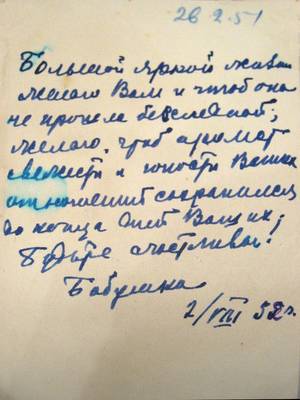 26.2.51
Большой яркой жизни
желаю Вам и чтоб она
не прошла бесследной;
желаю, чтоб аромат
свежести и юности Ваших
отношений сохранился
до конца дней Ваших;
Будьте счастливы!
Бабушка
2/VIII 52 г.